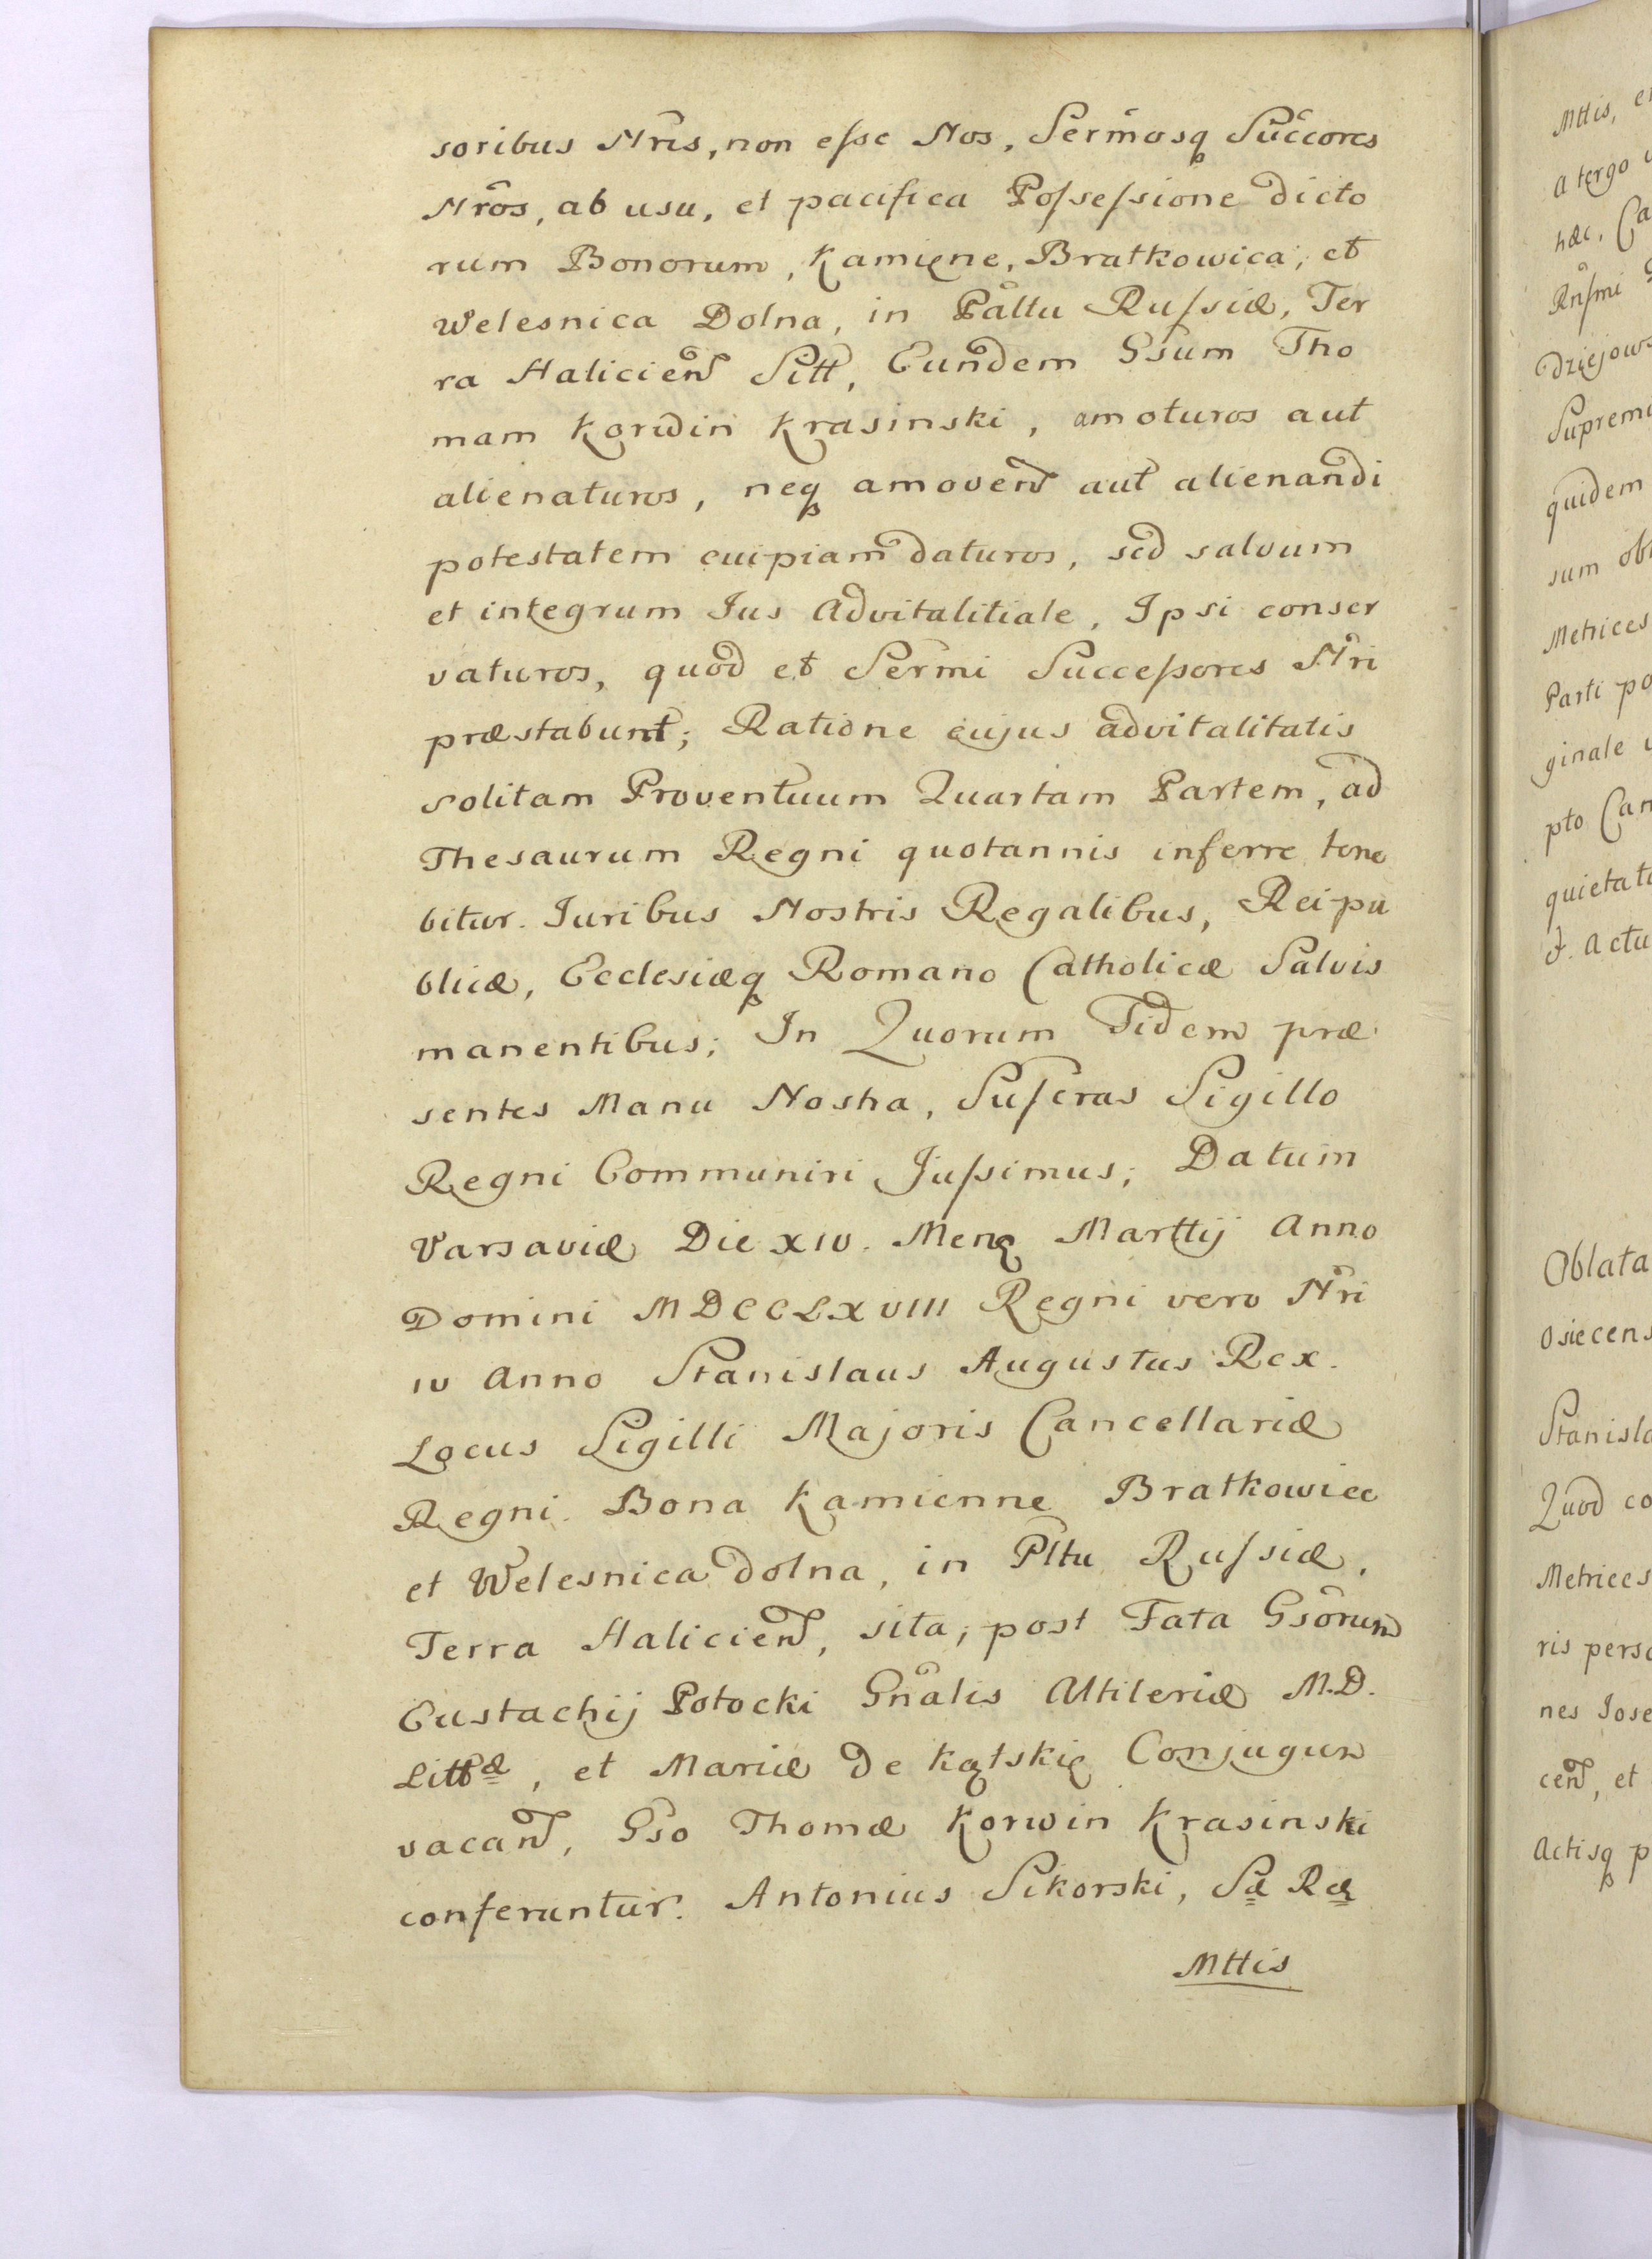 soribus Nrıs, non eſse Nos, Sermosq Succores
Nros, ab usu, et pacifica Poſseſsione dicto
rum Bonorum, Kamięne, Bratkowica, et
Welesnica Dolna, in Pałtu Ruſsiæ, Ter
ra Halicien Sitt, Eundem Gsum Tho
mam Korwin Krasinski, amoturos aut
alienaturos, neq amoven aut alienandi
potestatem cuipiam daturos, sed salvum
et integrum Jus Advitalitiale, Ipsi conser
vaturos, quod et Sermi Succeſsores Nri
præstabunt; Ratione cujus advitalitatis
solitam Proventuum Quartam Partem, ad
Thesaurum Regni quotannis inferre tene
bitur. Juribus Nostris Regalibus, Reipu
blicæ, Ecclesiæq Romano Catholicæ Salvis
manentibus; In Quorum Fidem præ
sentes Manu Nostra, Suſcras Sigillo
Regni Communiri Juſsimus; Datum
Varsaviæ Die XIV. Menq Marttij Anno
Domini MDCCLXVIII Regni vero Nri
IV Anno Stanislaus Augustus Rex.
Locus Sigilli Majoris Cancellariæ
Regni. Bona Kamienne Bratkowice
et Welesnica dolna, in Pltu Ruſsiæ,
Terra Halicien, sita, post Fata Gsorum
Eustachij Potocki Gnalis Altileriæ M.D.
Littæ, et Mariæ de Kątskię Conjugum
vacan, Gso Thomæ Korwin Krasinski
conferuntur. Antonius Sikorski, Sæ Ræ
Mttis
Mttis,
a tergo
hæc, Ca
Rnſmi
Dziejows
Suprem
quidem
sum ob
Metrices
Parti po
ginale
pto Can
quietat
d. actu
Oblata
Osiecens
Stanisla
Quod co
Metrices
ris perso
nes Jose
cen, et
Actisq p